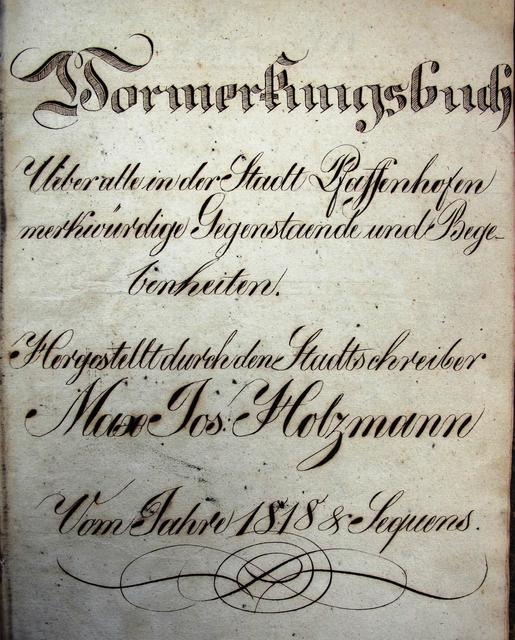 Vormerkungsbuch
Ueber alle in der Stadt Pfaffenhofen
merkwürdige Gegenstaende und Bege-
benheiten.
Hergestellt durch den Stadtschreiber
Max Jos: Holzmann
Vom Jahre 1818 & Sequens.